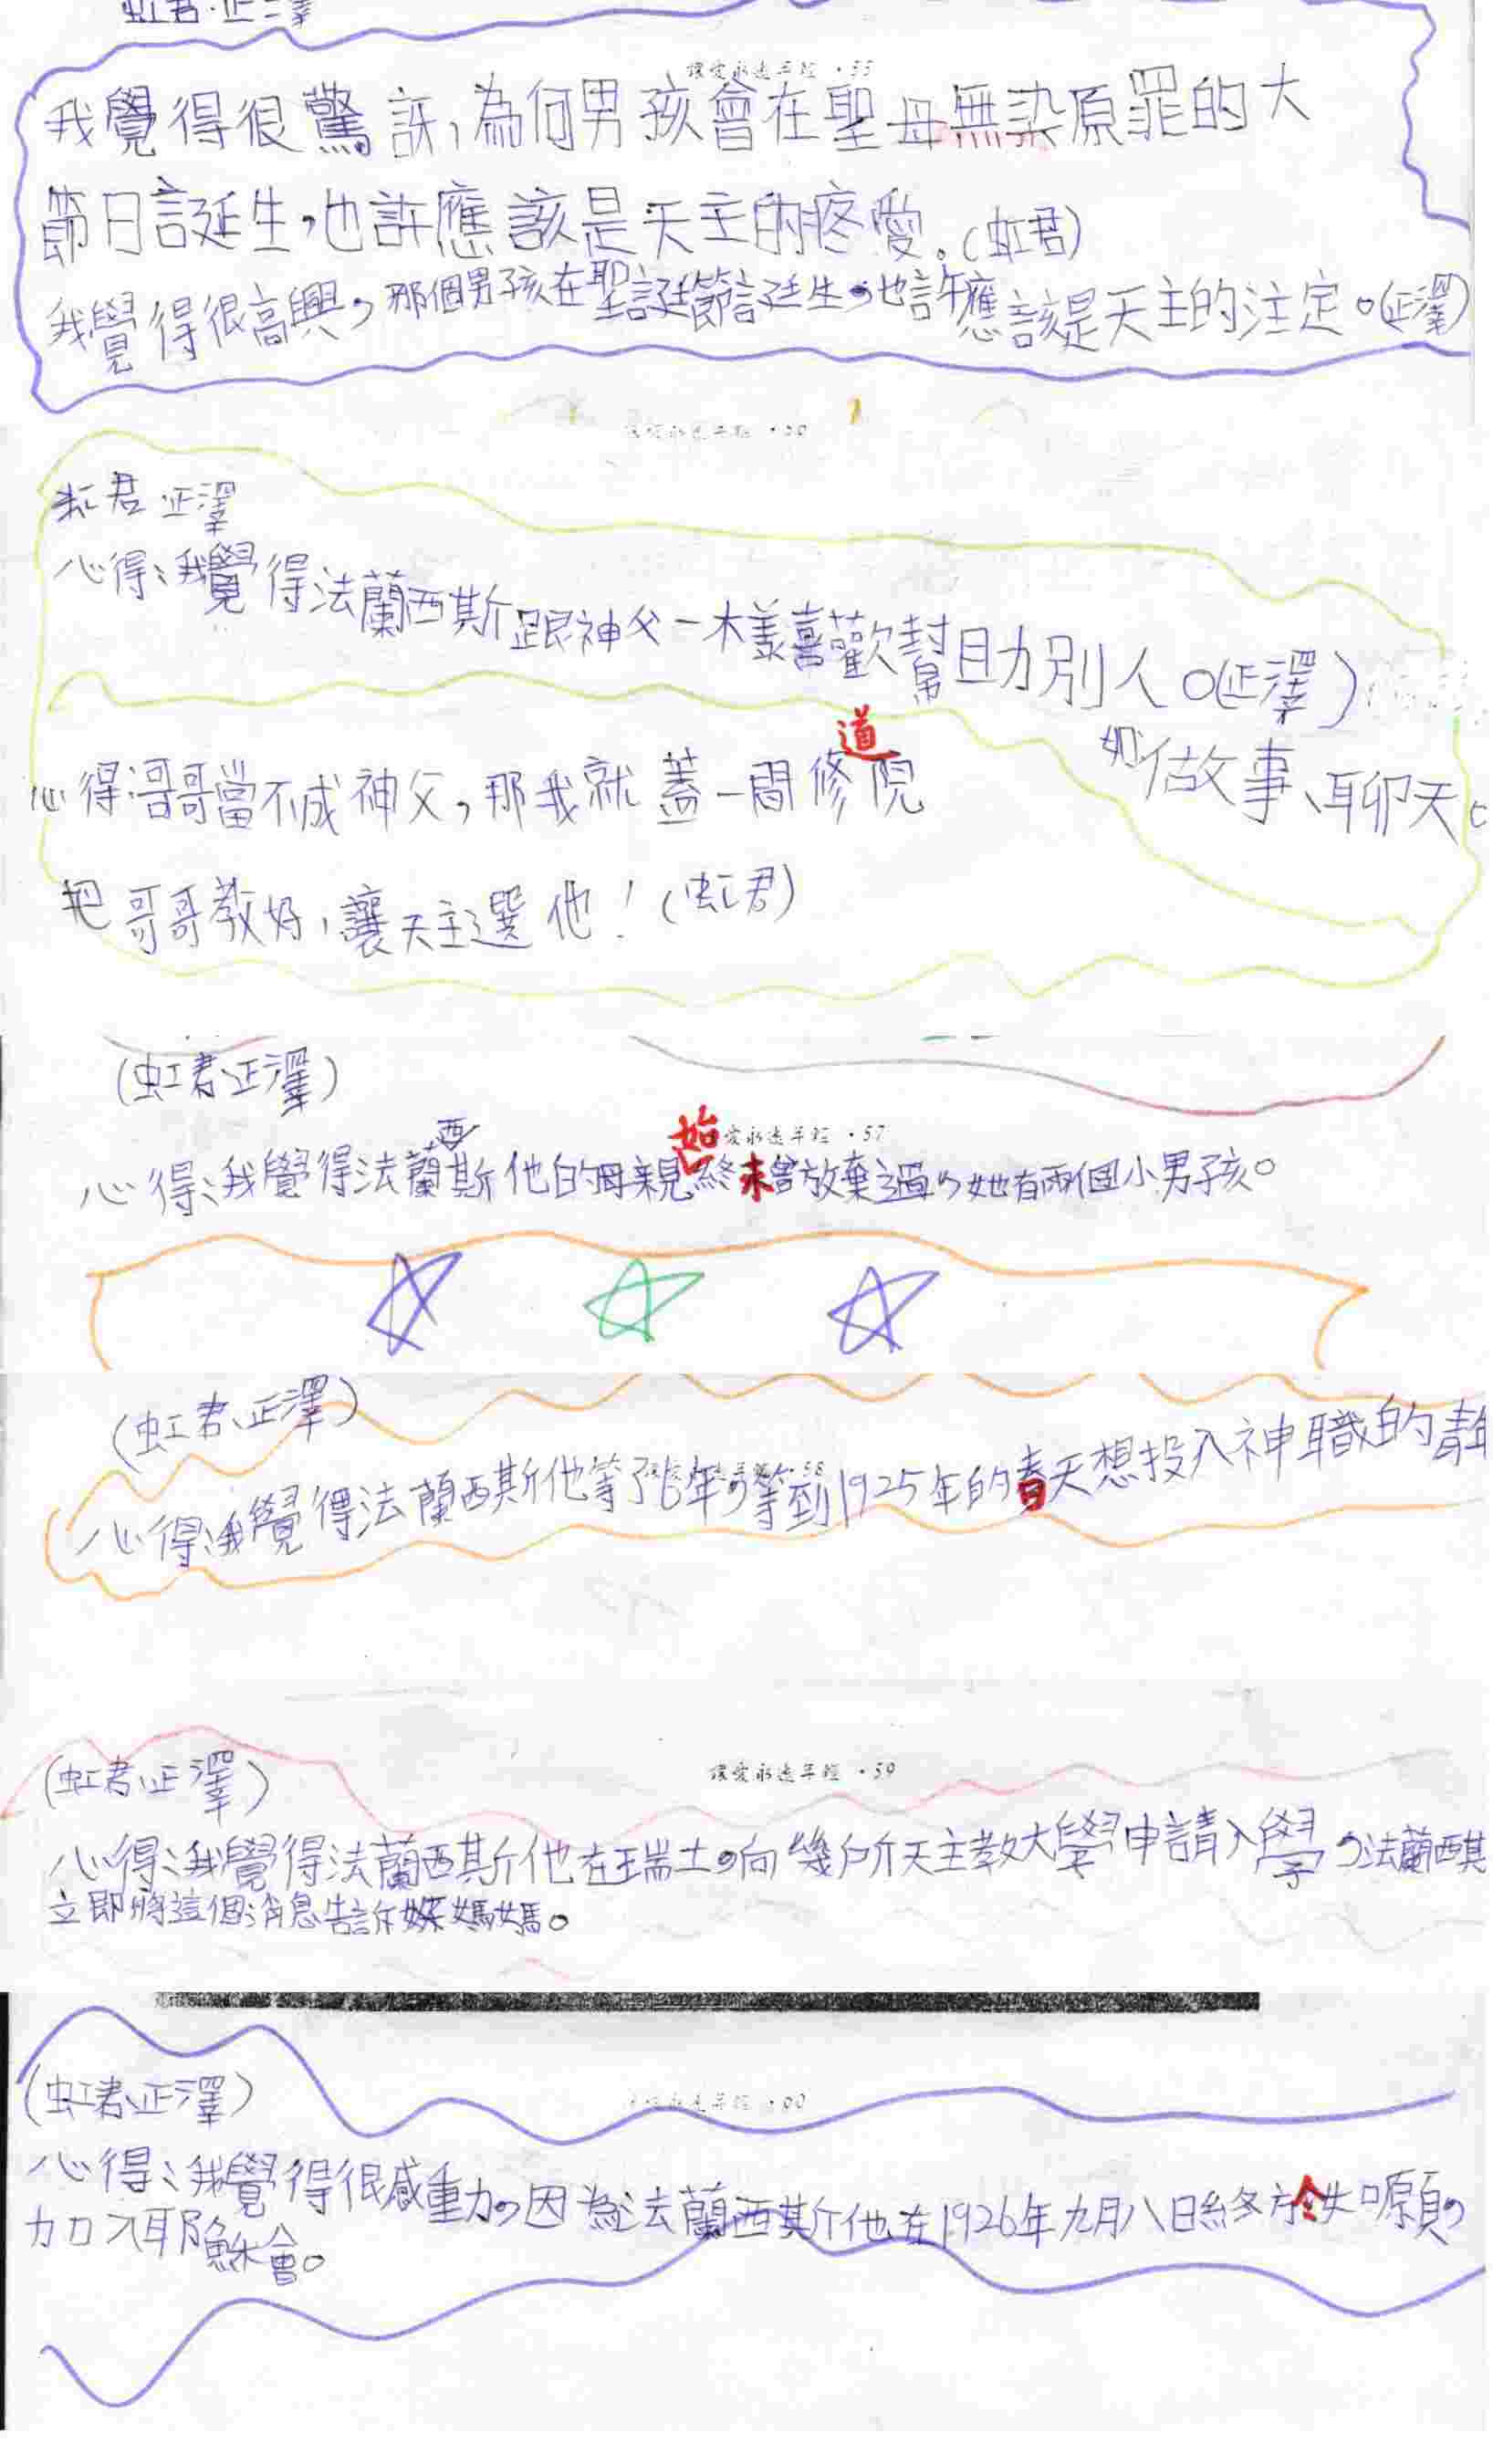 虹君·正澤
讓愛永遠年輕 ·55
我覺得很驚訝,為何男孩會在聖母無染原罪的大
節日誕生,也許應該是天主的疼愛。(虹君)
我覺得很高興,那個男孩在聖誕節誕生,也許應該是天主的注定。(正澤)
讓愛永遠年輕 ·56
虹君 正澤
心得:我覺得法蘭西斯跟神父一樣喜歡幫助別人。(正澤)
如做故事、聊天。
道
心得哥哥當不成神父,那我就蓋一間修院
把哥哥教好,讓天主選他!(虹君)
(虹君、正澤)
讓愛永遠年輕 ·57
西 始
心得:我覺得法蘭斯他的母親終未曾放棄過,她有兩個小男孩。
(虹君、正澤)
心得:我覺得法蘭西斯他等了6年,等到1925年的春天想投入神職的
(虹君、正澤)
讓愛永遠年輕 ·59
心得:我覺得法蘭西斯他在瑞士,向幾所天主教大學申請入學,法蘭西斯
立即將這個消息告訴媽媽。
(虹君、正澤)
讓愛永遠年輕 ·60
心得:我覺得很感動,因為法蘭西斯他在1926年九月八日終於如願,
加入耶穌會。